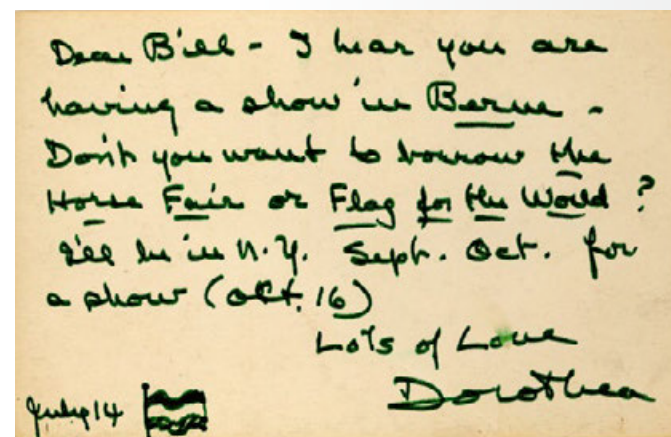 Dear Bill - I hear you are
having a show in Berne -
Don't you want to borrow the
Horse Fair or Flag for the World?
I'll be in N.Y. Sept. Oct. for
a show (Oct. 16)
Lots of Love
Dorothea
July 14